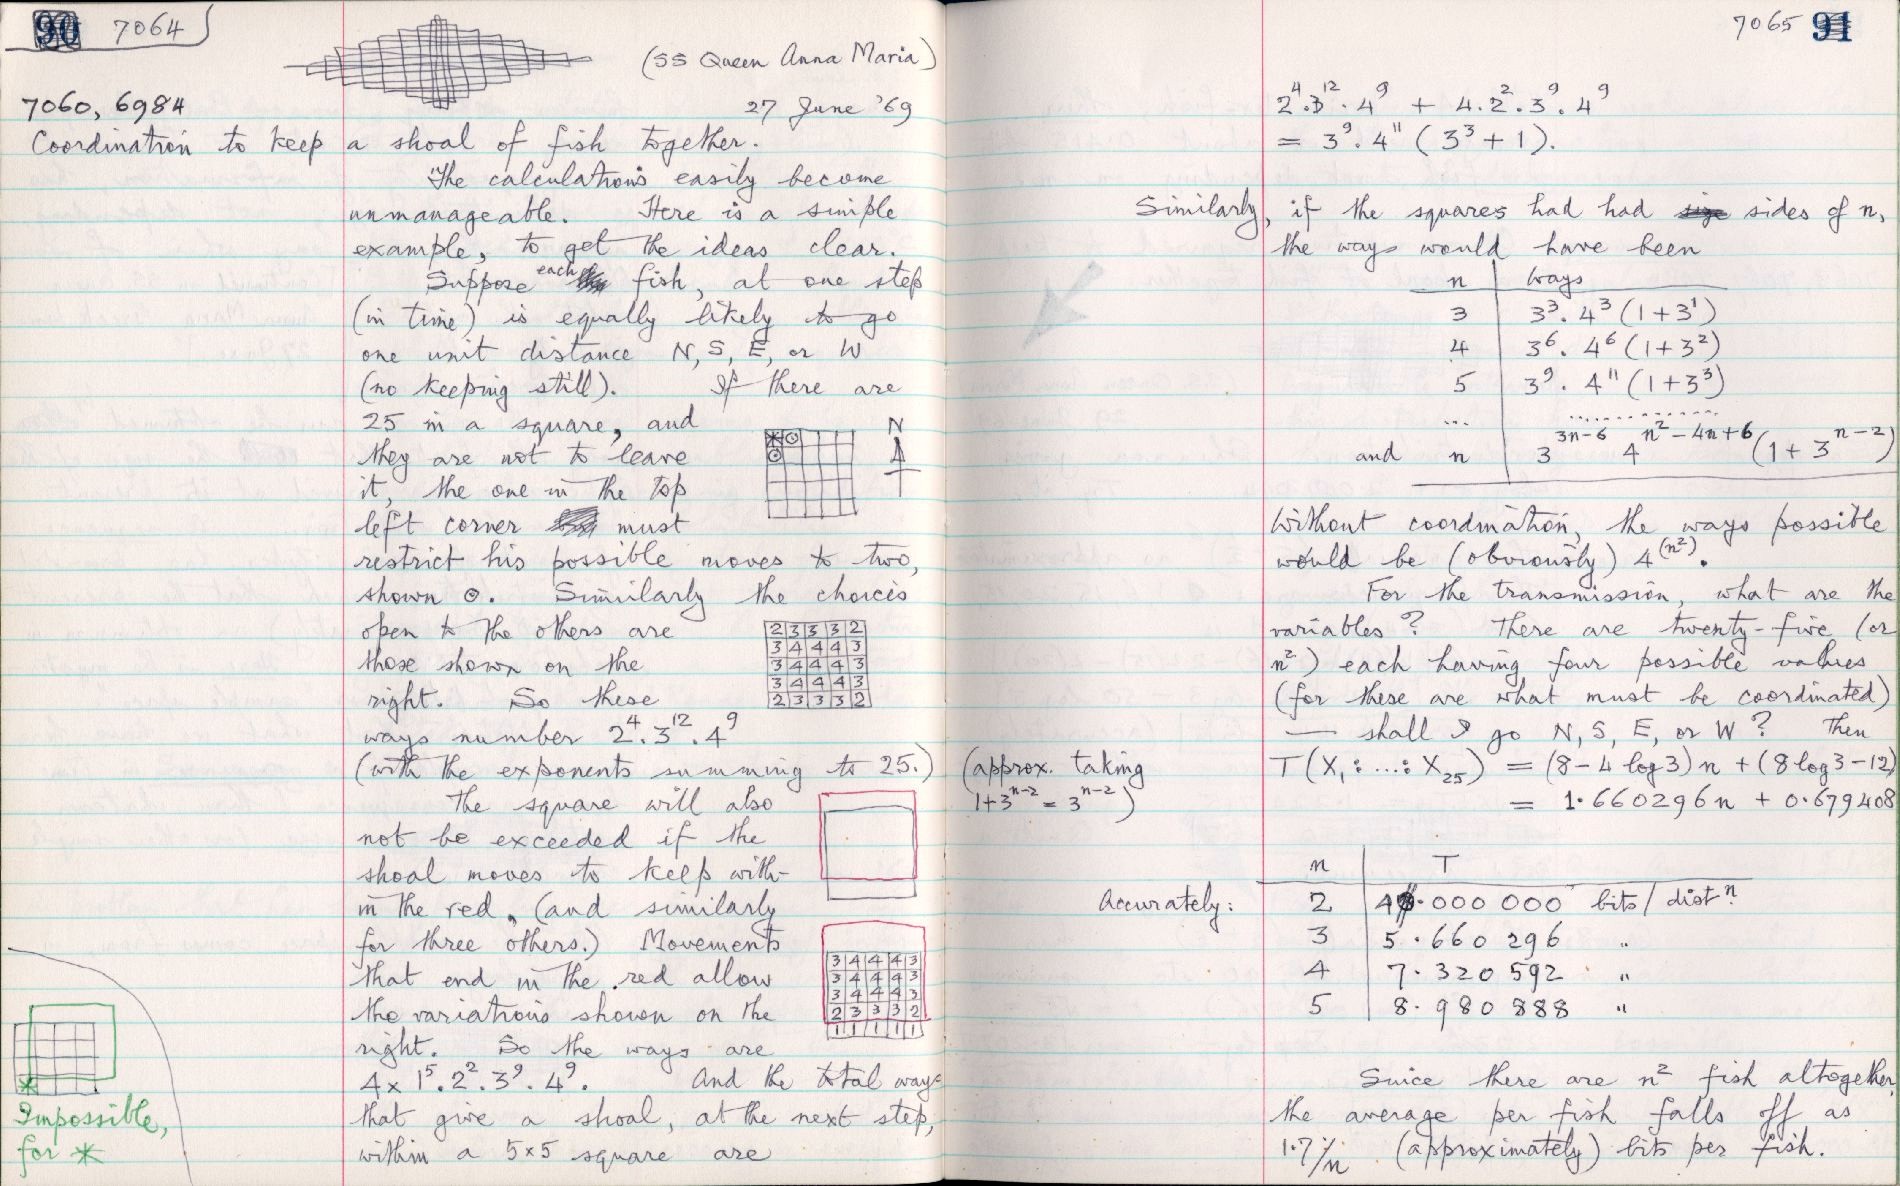 90 7064
(SS Queen Anna Maria)
7060, 6984
27 June '69
Coordination to keep a shoal of fish together.
The calculations easily become
unmanageable. Here is a simple
example, to get the ideas clear.
Suppose each fish, at one step
(in time) is equally likely to go
one unit distance N, S, E, or W
(no keeping still). If there are
25 in a square, and
they are not to leave
it, the one in the top
left corner must
restrict his possible moves to two,
shown ⊙. Similarly the choices
open to the others are
those shown on the
right. So these
ways number 2⁴.3¹².4⁹
(with the exponents summing to 25.)
The square will also
not be exceeded if the
shoal moves to keep with-
in the red, (and similarly
for three others.) Movements
that end in the red allow
the variations shown on the
right. So the ways are
4 × 1⁵.2².3⁹.4⁹. And the total ways
that give a shoal, at the next step,
within a 5×5 square are
N
2 3 3 3 2
3 4 4 4 3
3 4 4 4 3
3 4 4 4 3
2 3 3 3 2
3 4 4 4 3
3 4 4 4 3
3 4 4 4 3
2 3 3 3 2
1 1 1 1 1
*
Impossible,
for *
7065 91
2⁴.3¹².4⁹ + 4.2².3⁹.4⁹
= 3⁹.4¹¹(3³+1).
Similarly, if the squares had had size sides of n,
the ways would have been
n ways
3 3³.4³(1+3¹)
4 3⁶.4⁶(1+3²)
5 3⁹.4¹¹(1+3³)
... ..............
and n 3³ⁿ⁻⁶ 4^(n²−4n+6) (1+3ⁿ⁻²)
Without coordination, the ways possible
would be (obviously) 4^(n²).
For the transmission, what are the
variables? There are twenty-five (or
n²) each having four possible values
(for these are what must be coordinated)
— shall I go N, S, E, or W? Then
(approx. taking
1+3ⁿ⁻² = 3ⁿ⁻²)
T(X₁:...:X₂₅) = (8−4 log 3)n + (8 log 3−12)
= 1.660296n + 0.679408
n T
Accurately: 2 4.000 000 bits/distⁿ.
3 5.660 296 "
4 7.320 592 "
5 8.980 888 "
Since there are n² fish altogether,
the average per fish falls off as
1.7/n (approximately) bits per fish.